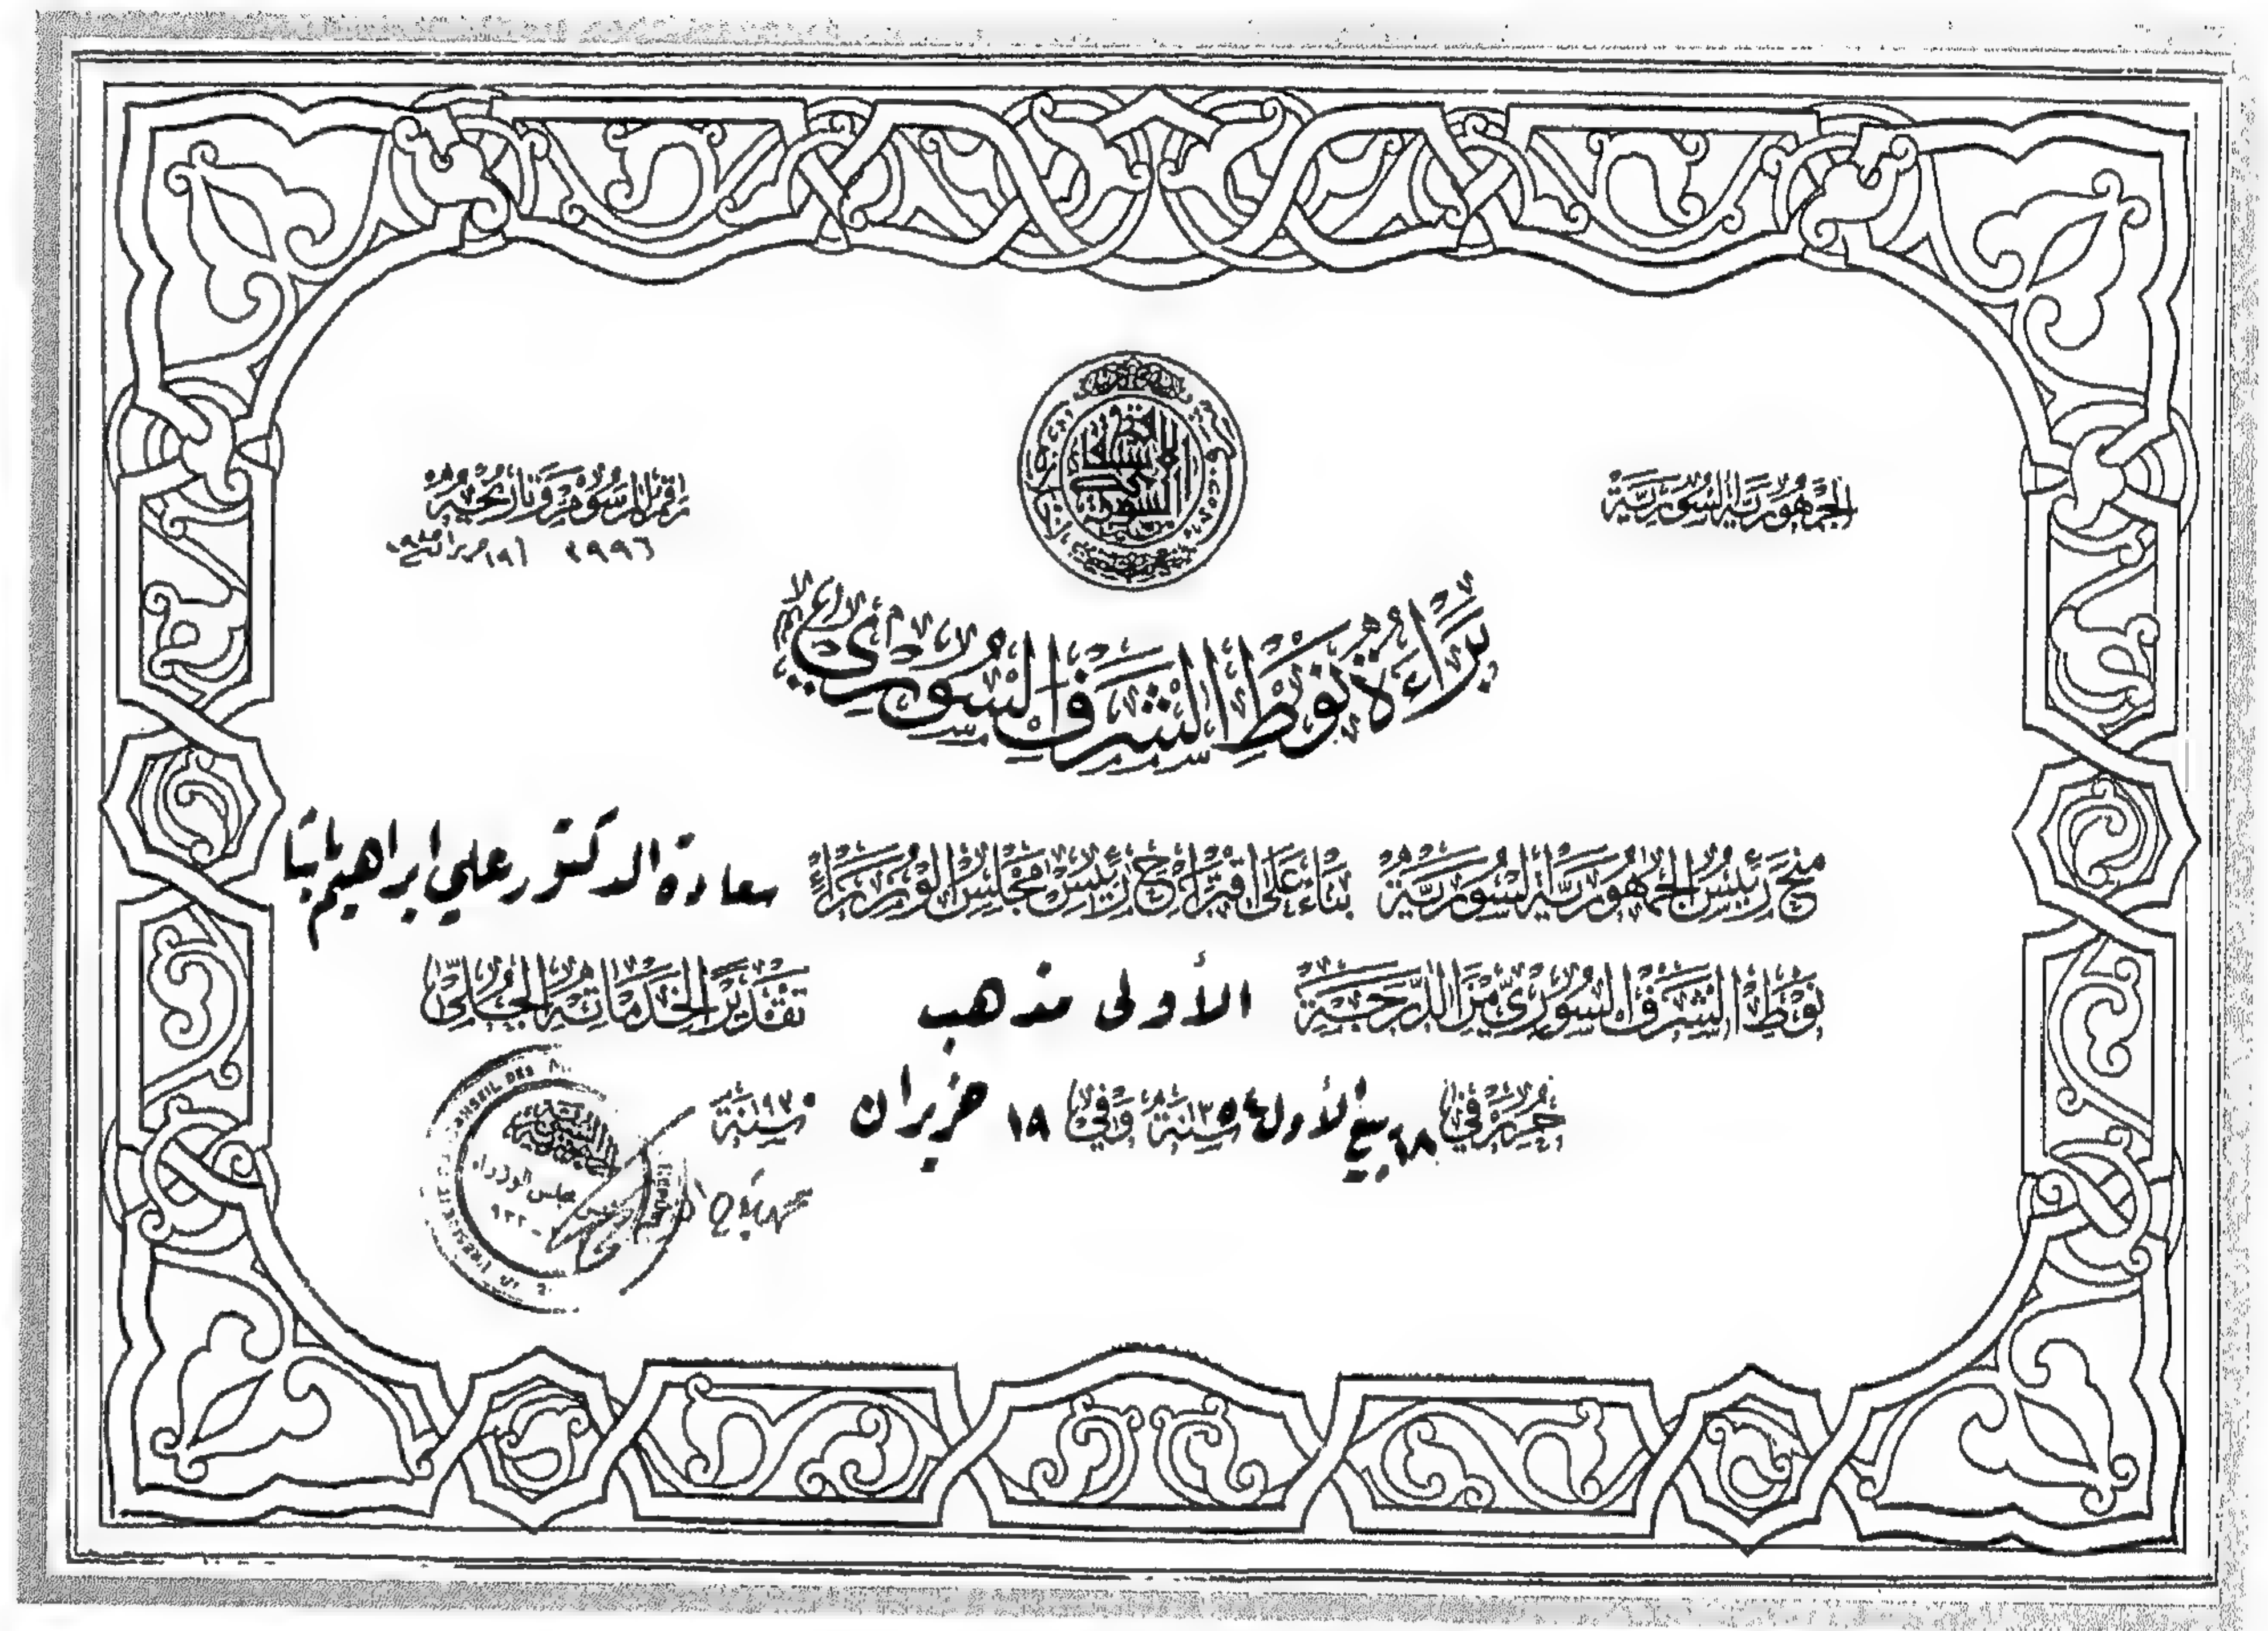 الجمهورية السورية
رقم المرسوم وتاريخه
٢٩٩٦
براءة نوط الشرف السوري
منح رئيس الجمهورية السورية بناء على اقتراح رئيس مجلس الوزراء سعادة الدكتور علي ابراهيم باشا
نوط الشرف السوري من الدرجة الأولى مذهب تقديراً لخدماته الجلى
حرر في ٢٨ ربيع الأول سنة ١٣٥٤ وفي ١٨ حزيران سنة
مجلس الوزراء